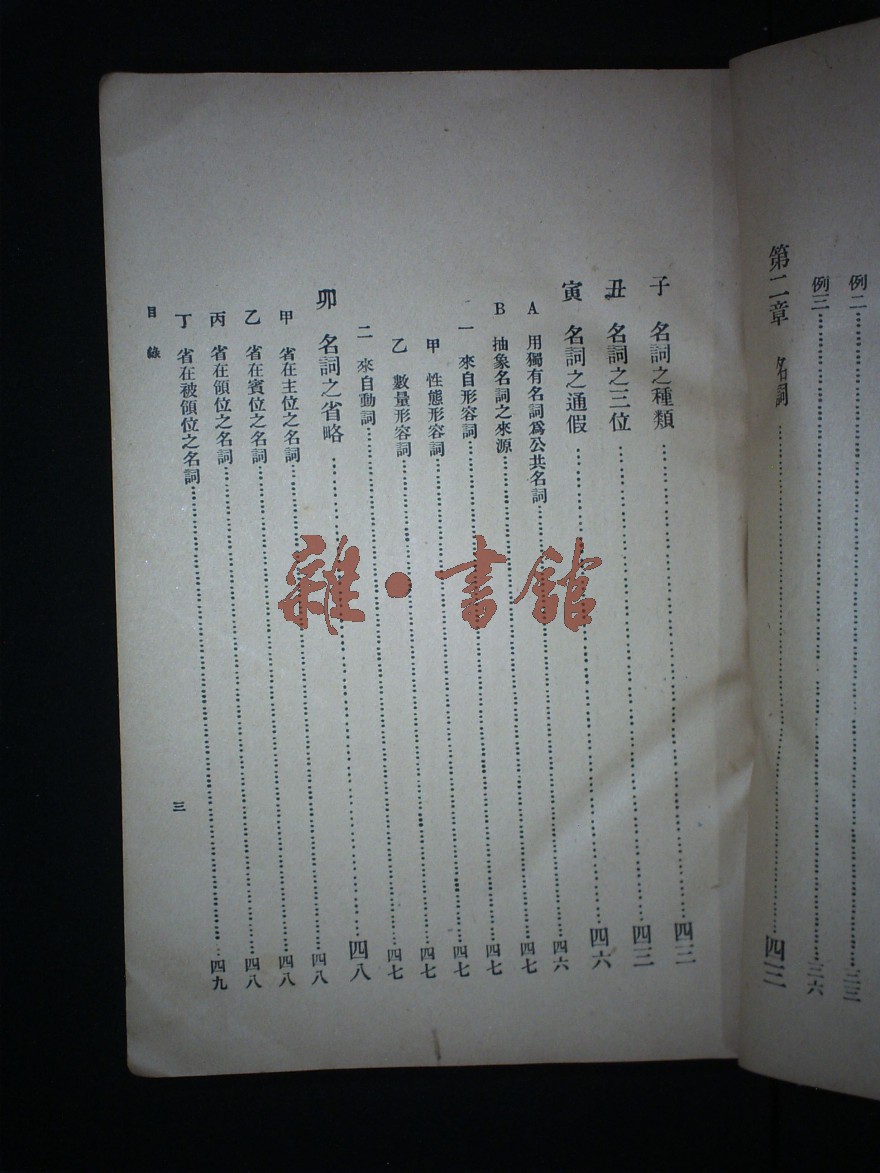 例二……三三
例三……三六
第二章 名詞……四三
子 名詞之種類……四三
丑 名詞之三位……四三
寅 名詞之通假……四六
A 用獨有名詞爲公共名詞……四六
B 抽象名詞之來源……四七
一 來自形容詞……四七
甲 性態形容詞……四七
乙 數量形容詞……四七
二 來自動詞……四七
卯 名詞之省略……四八
甲 省在主位之名詞……四八
乙 省在賓位之名詞……四八
丙 省在領位之名詞……四八
丁 省在被領位之名詞……四九
目錄
三
雜·書館